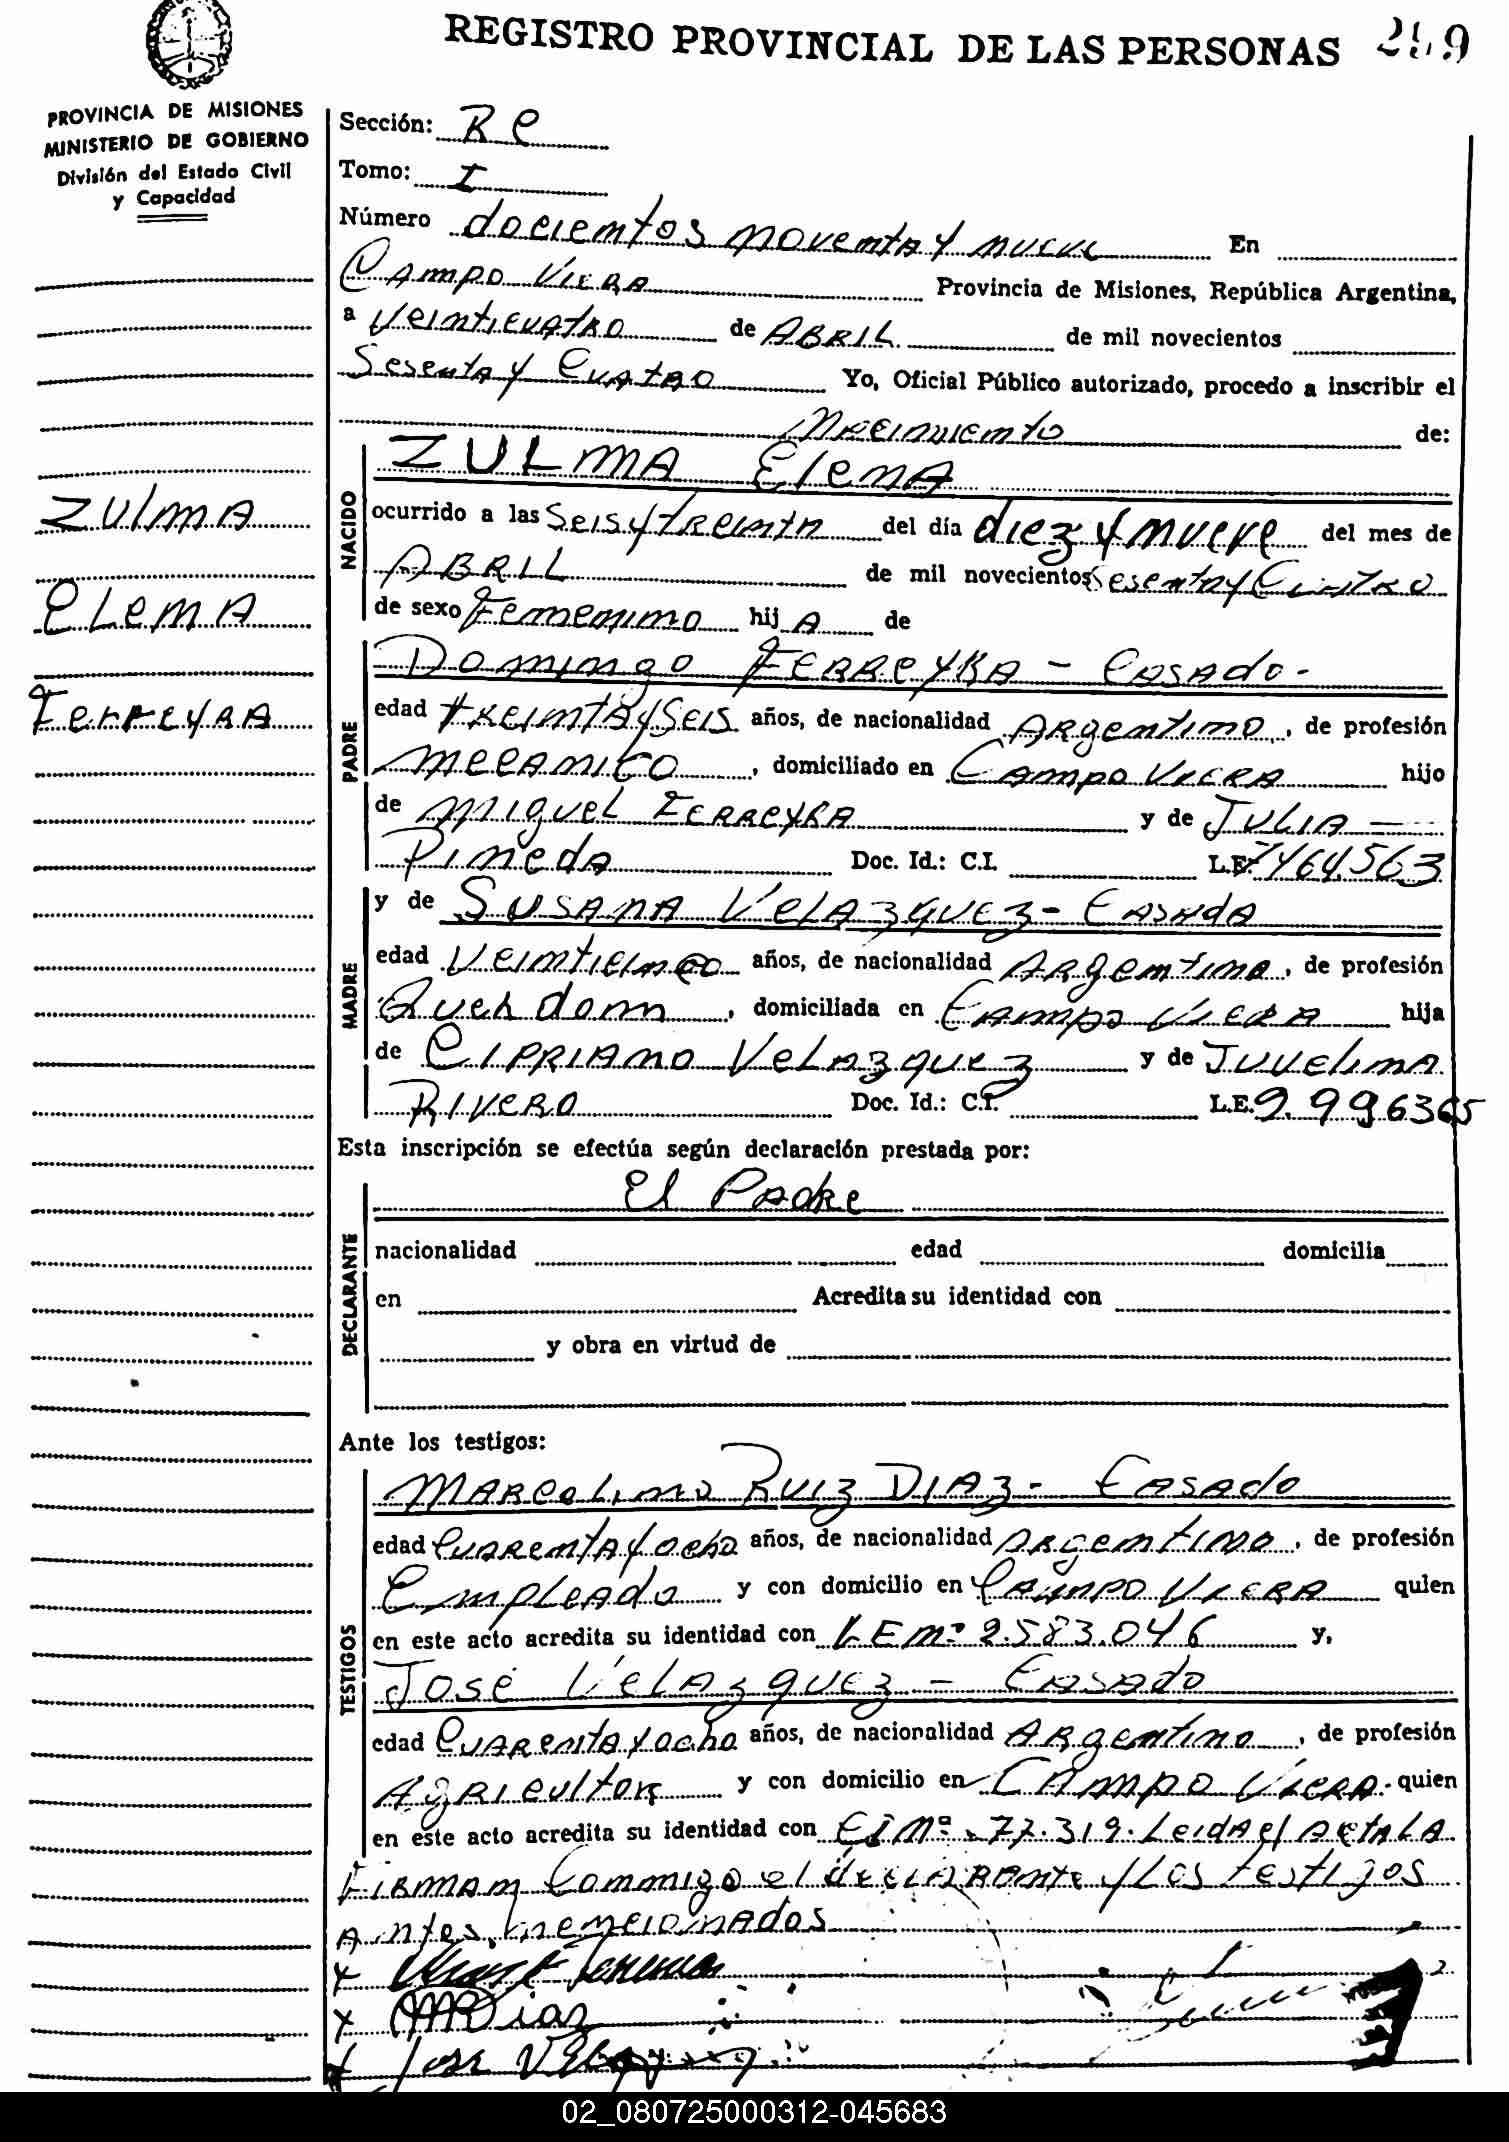 REGISTRO PROVINCIAL DE LAS PERSONAS 299
PROVINCIA DE MISIONES
MINISTERIO DE GOBIERNO
División del Estado Civil
y Capacidad
Sección: RC
Tomo: I
Número docientos noventa y nueve En
Campo Viera Provincia de Misiones, República Argentina,
a Veinticuatro de ABRIL de mil novecientos
Sesenta y Cuatro Yo, Oficial Público autorizado, procedo a inscribir el
Nacimiento de:
ZULMA Elena
NACIDO
ocurrido a las Seis y treinta del día diez y nueve del mes de
ABRIL de mil novecientos Sesenta y Cuatro
de sexo Femenino hij A de
Zulma
Elena
Ferreyra
PADRE
Domingo FERREYRA - Casado -
edad treinta y Seis años, de nacionalidad Argentino, de profesión
mecanico, domiciliado en Campo Viera hijo
de Miguel Ferreyra y de Julia —
Pineda Doc. Id.: C.I. L.E. 7464563
MADRE
y de Susana Velazquez - Casada
edad Veinticinco años, de nacionalidad Argentina, de profesión
Queh dom, domiciliada en Campo Viera hija
de Cipriano Velazquez y de Juvelina
Rivero Doc. Id.: C.I. L.E. 9.996365
Esta inscripción se efectúa según declaración prestada por:
DECLARANTE
El Padre
nacionalidad edad domicilia
en Acredita su identidad con
y obra en virtud de
Ante los testigos:
TESTIGOS
Marcolino Ruiz Diaz - Casado
edad Cuarenta y ocho años, de nacionalidad Argentino, de profesión
Empleado y con domicilio en Campo Viera quien
en este acto acredita su identidad con LE Nº 2.583.046 y,
José Velazquez - Casado
edad Cuarenta y ocho años, de nacionalidad Argentino, de profesión
Agricultor y con domicilio en Campo Viera. quien
en este acto acredita su identidad con CI Nº 77.319. Leida el acta LA
Firman conmigo el declarante y los testigos
antes mencionados
x
x MR Diaz
x Jose Velazquez
02_080725000312-045683